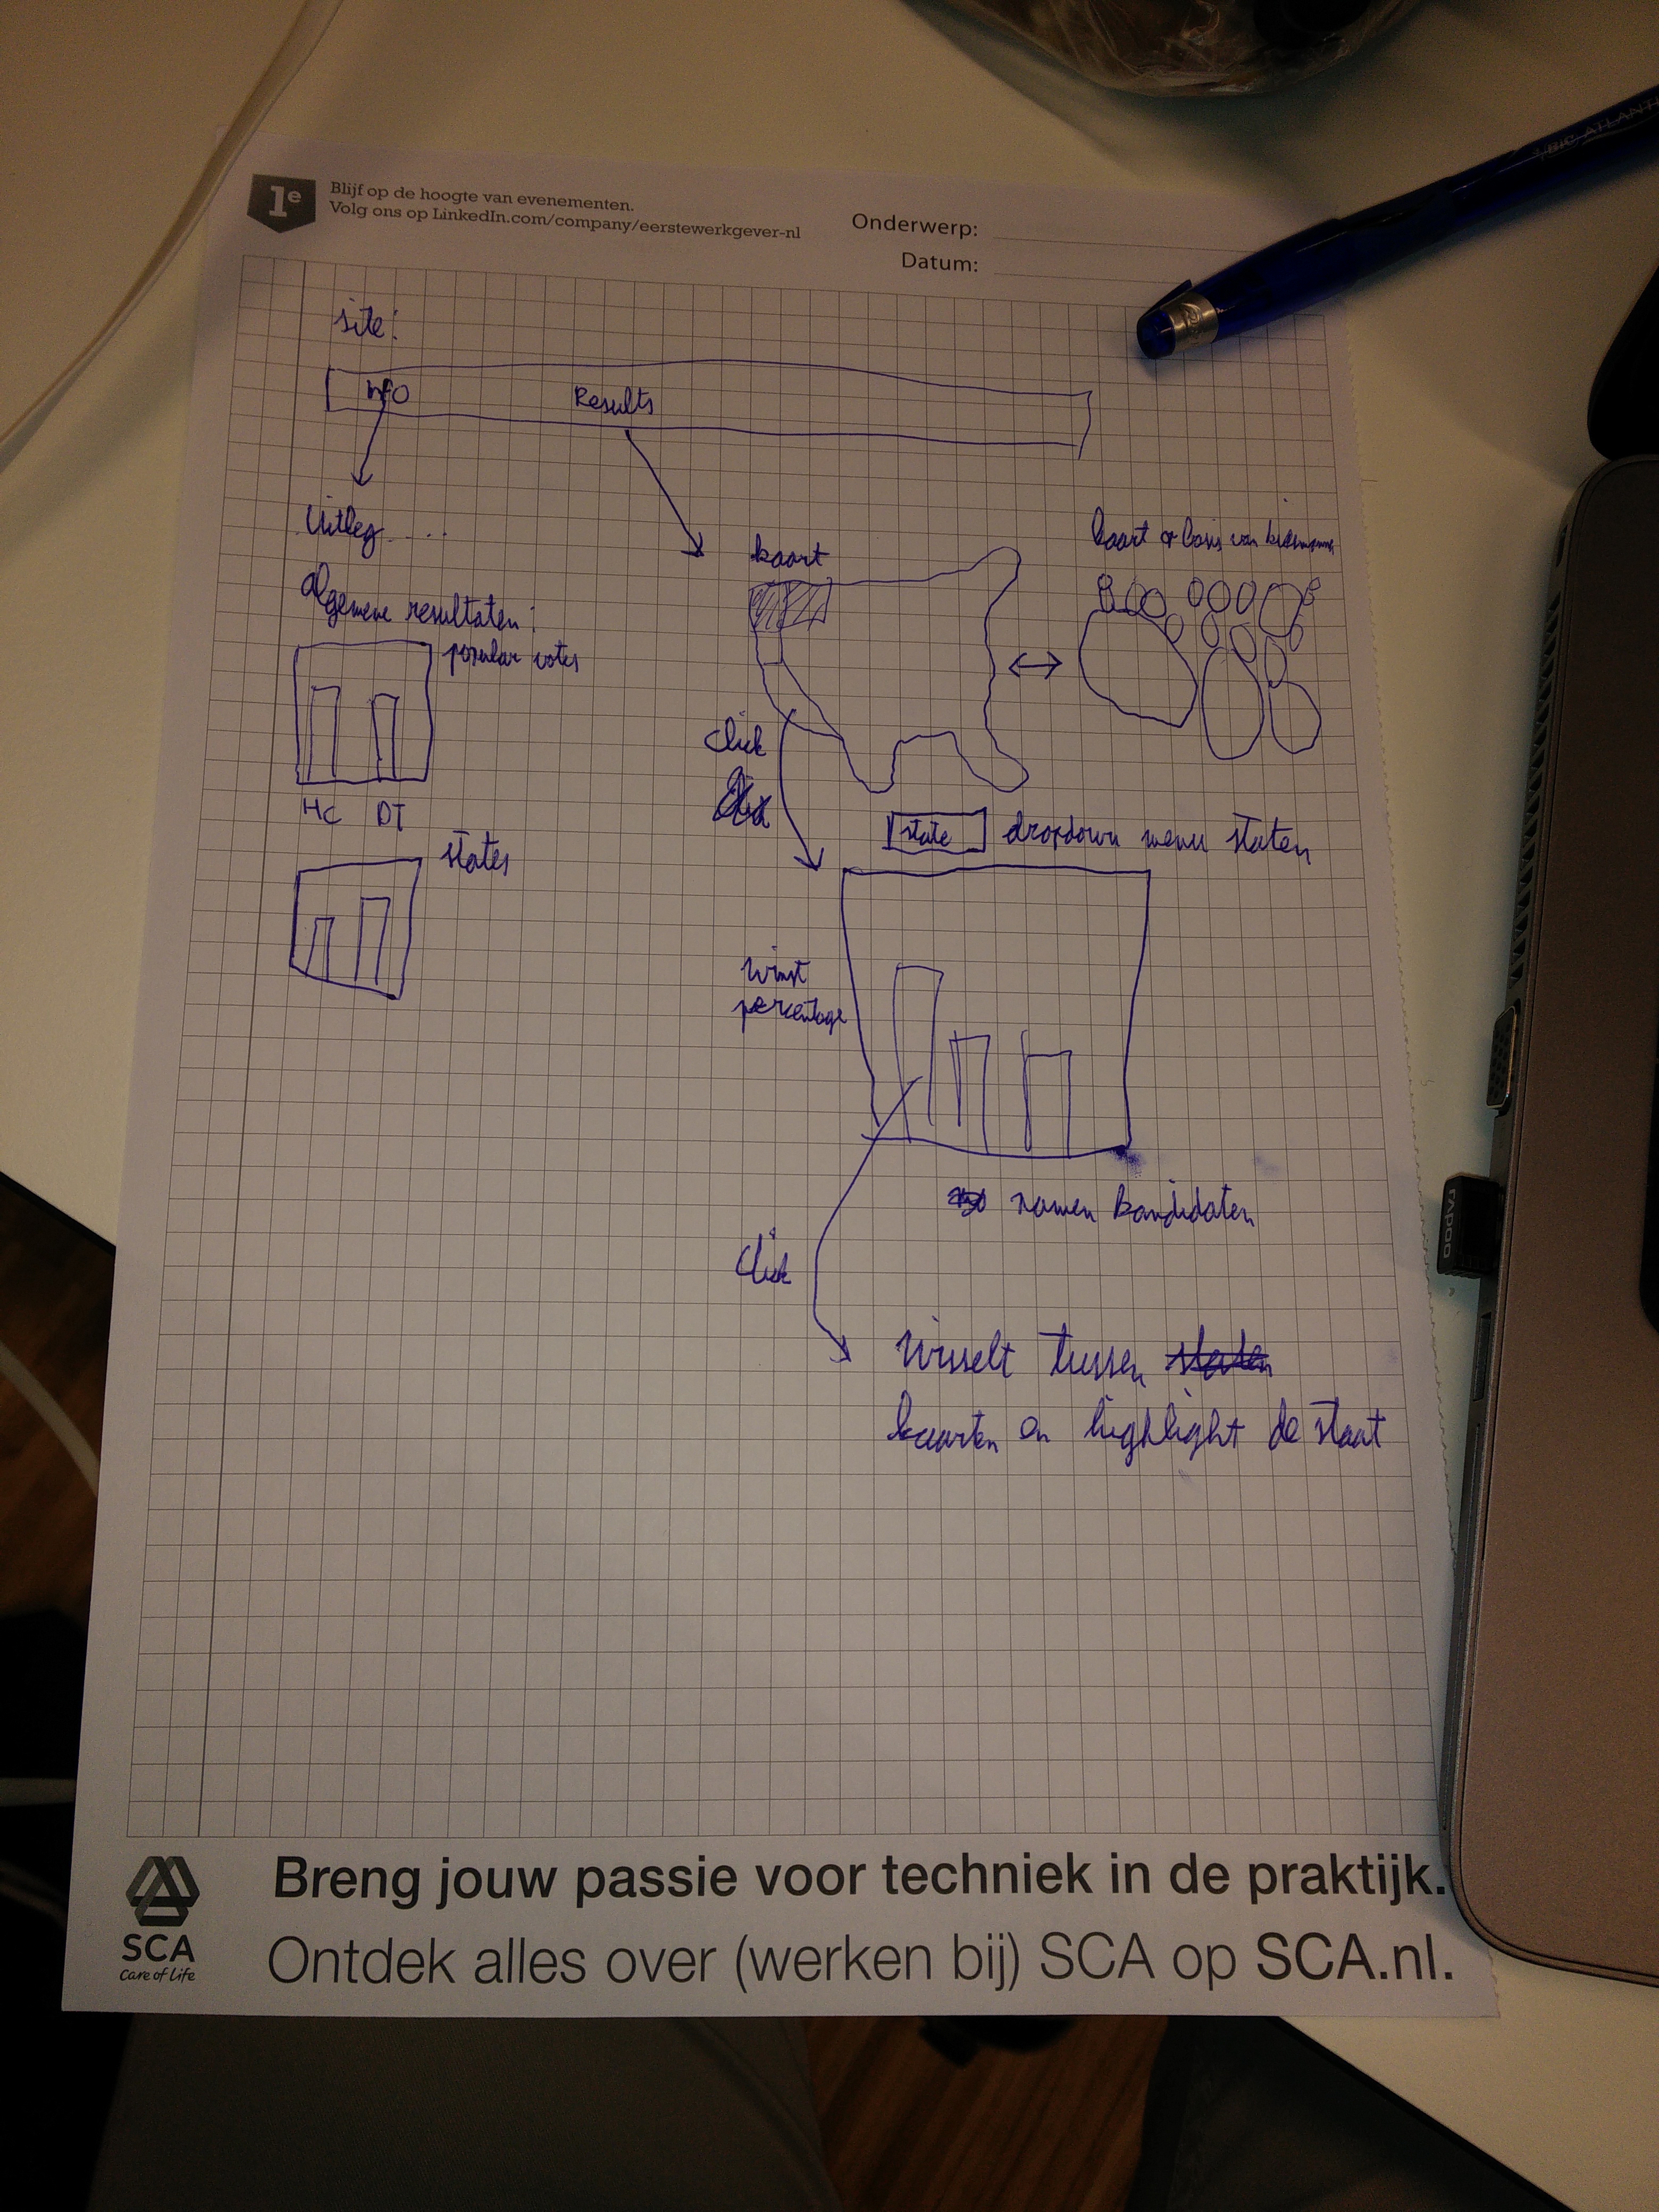 1e
Blijf op de hoogte van evenementen.
Volg ons op LinkedIn.com/company/eerstewerkgever-nl
Onderwerp:
Datum:
site:
INFO
Results
Uitleg.....
algemene resultaten:
popular votes
HC DT
states
kaart
kaart op basis van
click
state
dropdown menu staten
winst
percentage
namen kandidaten
click
Wisselt tussen staten
kaarten en highlight de staat
SCA
Care of Life
Breng jouw passie voor techniek in de praktijk.
Ontdek alles over (werken bij) SCA op SCA.nl.
BIC ATLANTI
rapoo